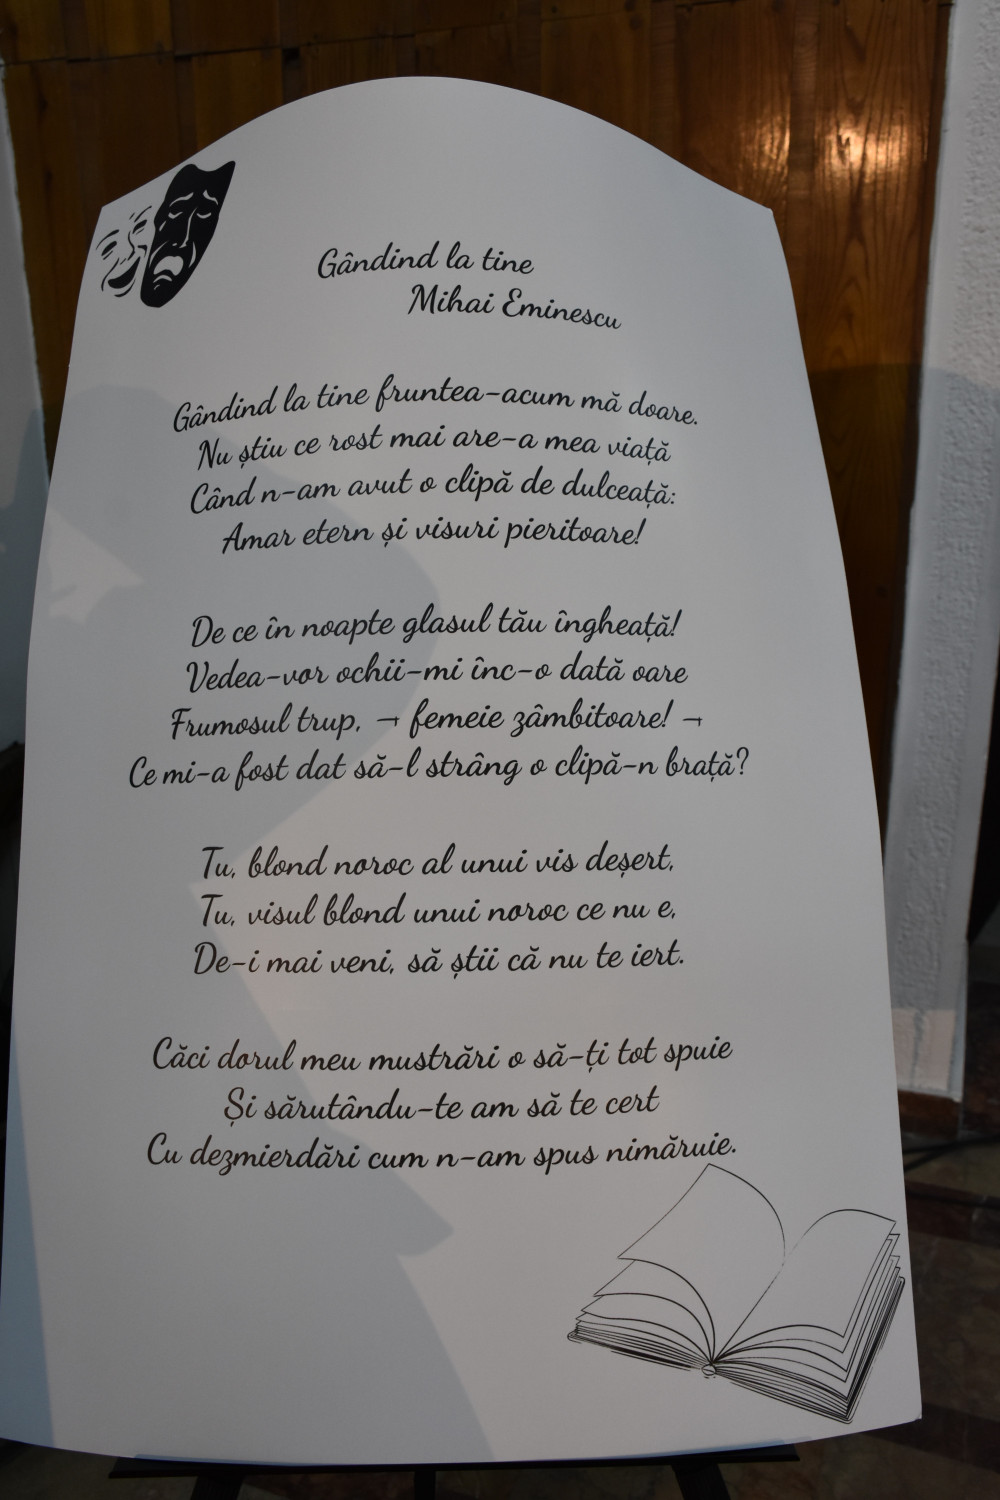 Gândind la tine
Mihai Eminescu
Gândind la tine fruntea-acum mă doare.
Nu știu ce rost mai are-a mea viață
Când n-am avut o clipă de dulceață:
Amar etern și visuri pieritoare!
De ce în noapte glasul tău îngheață!
Vedea-vor ochii-mi înc-o dată oare
Frumosul trup, ¬ femeie zâmbitoare! ¬
Ce mi-a fost dat să-l strâng o clipă-n brață?
Tu, blond noroc al unui vis deșert,
Tu, visul blond unui noroc ce nu e,
De-i mai veni, să știi că nu te iert.
Căci dorul meu mustrări o să-ți tot spuie
Și sărutându-te am să te cert
Cu dezmierdări cum n-am spus nimăruie.